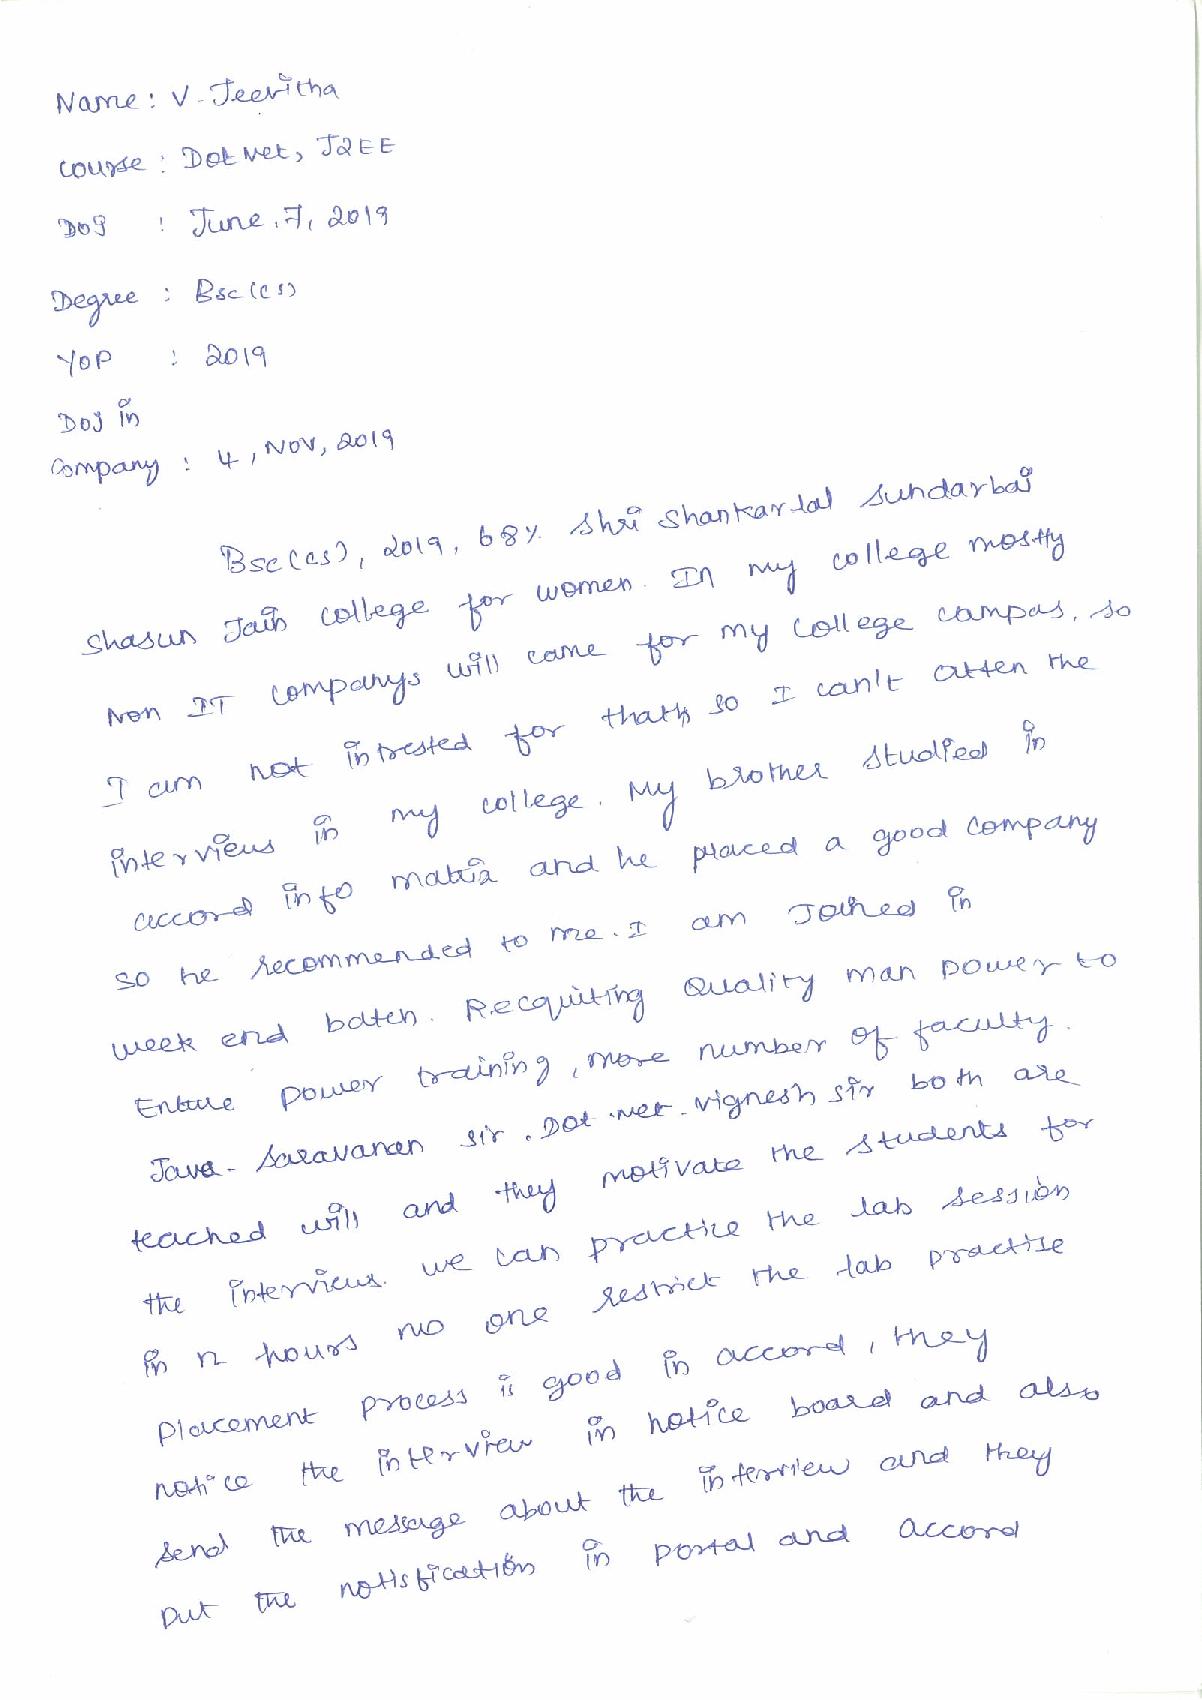 Name : V. Jeevitha
Course : Dot Net, J2EE
DOJ : June, 7, 2019
Degree : Bsc (cs)
YOP : 2019
DOJ in
Company : 4, Nov, 2019
Bsc (cs), 2019, 68% Shri Shankarlal Sundarbai
Shasun Jain College for women. In my college mostly
Non IT companys will came for my college campas, so
I am not intrested for that, so I can't atten the
interviews in my college. My brother studied in
accord info matrix and he placed a good company
so he recommended to me. I am Joined in
week end batch. Recquiting Quality man power to
Entire power training, more number of faculty.
Java - Saravanan sir, Dot net - vignesh sir both are
teached will and they motivate the students for
the interviews. we can practice the lab session
in n hours no one restrict the lab practise
Placement process is good in accord, they
notice the interview in notice board and also
send the message about the interview and they
put the notisfication in portal and accord